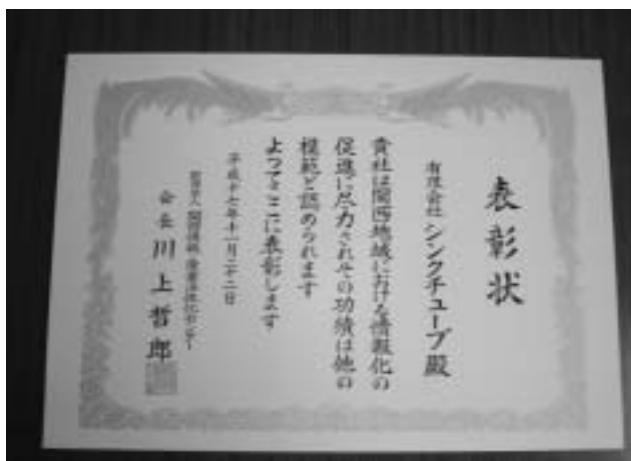 表彰状
有限会社 シンクチューブ殿
貴社は関西地域における情報化の
促進に尽力されその功績は他の
模範と認められます
よってここに表彰します
平成十七年十一月二十二日
財団法人 関西情報・産業活性化センター
会長 川上哲郎